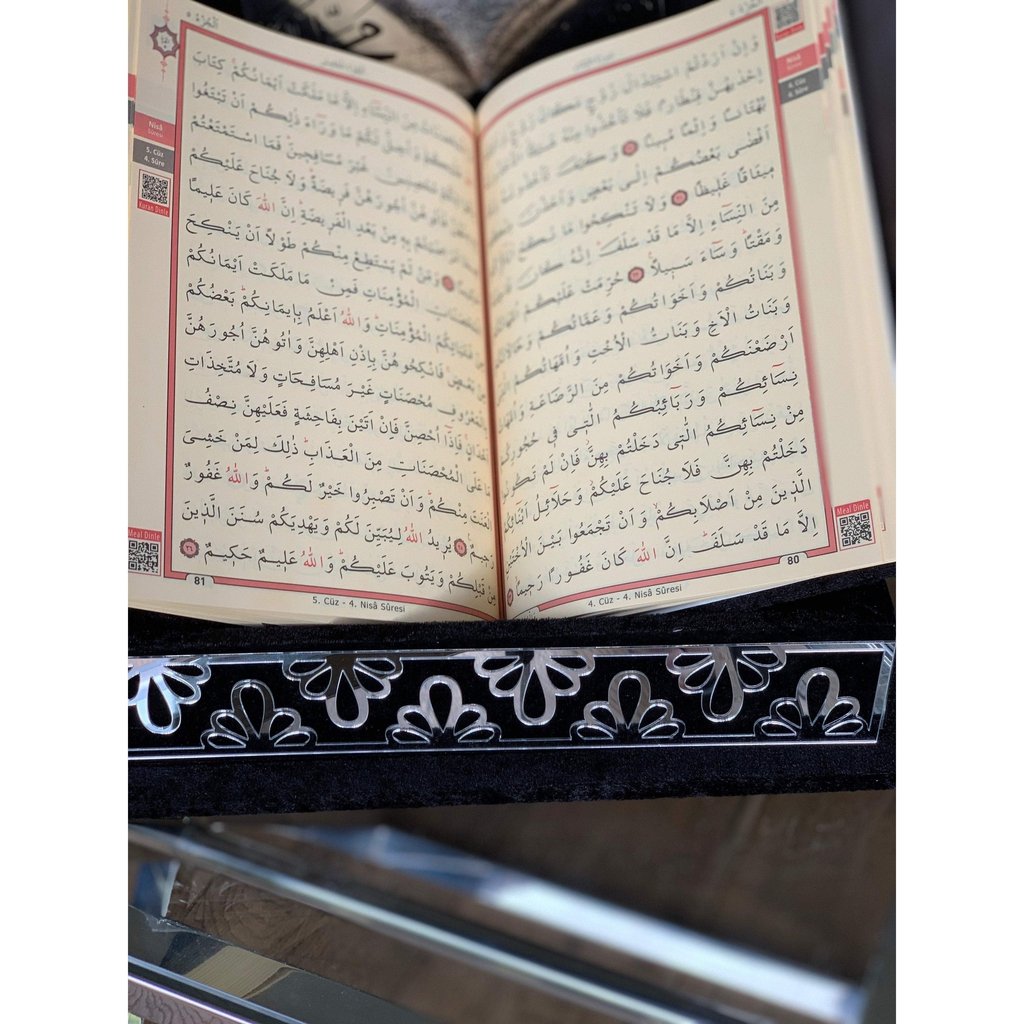 Kuran Dinle
Nisâ
4. Cüz
4. Sûre
وَاِنْ اَرَدْتُمُ اسْتِبْدَالَ زَوْجٍ مَكَانَ زَوْجٍ
اِحْدٰيهُنَّ قِنْطَارًا فَلَا تَأْخُذُوا مِنْهُ
بُهْتَانًا وَاِثْمًا مُبِينًا ﴿٢٠﴾ وَكَيْفَ
اَفْضٰى بَعْضُكُمْ اِلٰى بَعْضٍ وَاَخَذْنَ
مِيثَاقًا غَلِيظًا ﴿٢١﴾ وَلَا تَنْكِحُوا مَا نَكَحَ
مِنَ النِّسَاءِ اِلَّا مَا قَدْ سَلَفَ اِنَّهُ كَانَ
وَمَقْتًا وَسَاءَ سَبِيلًا ﴿٢٢﴾ حُرِّمَتْ عَلَيْكُمْ
وَبَنَاتُكُمْ وَاَخَوَاتُكُمْ وَعَمَّاتُكُمْ وَخَالَاتُكُمْ
وَبَنَاتُ الْاَخِ وَبَنَاتُ الْاُخْتِ وَاُمَّهَاتُكُمُ
اَرْضَعْنَكُمْ وَاَخَوَاتُكُمْ مِنَ الرَّضَاعَةِ
نِسَائِكُمْ وَرَبَائِبُكُمُ الّٰتِي فِي حُجُورِكُمْ
مِنْ نِسَائِكُمُ الّٰتِي دَخَلْتُمْ بِهِنَّ فَاِنْ لَمْ تَكُونُوا
دَخَلْتُمْ بِهِنَّ فَلَا جُنَاحَ عَلَيْكُمْ وَحَلَائِلُ اَبْنَائِكُمُ
الَّذِينَ مِنْ اَصْلَابِكُمْ وَاَنْ تَجْمَعُوا بَيْنَ الْاُخْتَيْنِ
اِلَّا مَا قَدْ سَلَفَ اِنَّ اللّٰهَ كَانَ غَفُورًا رَحِيمًا ﴿٢٣﴾
Meal Dinle
80
4. Cüz - 4. Nisâ Sûresi
اَلْجُزْءُ ٥
Nisâ
SÛRESİ
5. Cüz
4. Sûre
Kuran Dinle
مِنَ النِّسَاءِ اِلَّا مَا مَلَكَتْ اَيْمَانُكُمْ كِتَابَ
وَاُحِلَّ لَكُمْ مَا وَرَاءَ ذٰلِكُمْ اَنْ تَبْتَغُوا
غَيْرَ مُسَافِحِينَ فَمَا اسْتَمْتَعْتُمْ
اُجُورَهُنَّ فَرِيضَةً وَلَا جُنَاحَ عَلَيْكُمْ
بِهِ مِنْ بَعْدِ الْفَرِيضَةِ اِنَّ اللّٰهَ كَانَ عَلِيمًا
﴿٢٤﴾ وَمَنْ لَمْ يَسْتَطِعْ مِنْكُمْ طَوْلًا اَنْ يَنْكِحَ
الْمُؤْمِنَاتِ فَمِنْ مَا مَلَكَتْ اَيْمَانُكُمْ
فَتَيَاتِكُمُ الْمُؤْمِنَاتِ وَاللّٰهُ اَعْلَمُ بِاِيمَانِكُمْ بَعْضُكُمْ
مِنْ بَعْضٍ فَانْكِحُوهُنَّ بِاِذْنِ اَهْلِهِنَّ وَاٰتُوهُنَّ اُجُورَهُنَّ
بِالْمَعْرُوفِ مُحْصَنَاتٍ غَيْرَ مُسَافِحَاتٍ وَلَا مُتَّخِذَاتِ
اَخْدَانٍ فَاِذَا اُحْصِنَّ فَاِنْ اَتَيْنَ بِفَاحِشَةٍ فَعَلَيْهِنَّ نِصْفُ
مَا عَلَى الْمُحْصَنَاتِ مِنَ الْعَذَابِ ذٰلِكَ لِمَنْ خَشِيَ
الْعَنَتَ مِنْكُمْ وَاَنْ تَصْبِرُوا خَيْرٌ لَكُمْ وَاللّٰهُ غَفُورٌ
رَحِيمٌ ﴿٢٥﴾ يُرِيدُ اللّٰهُ لِيُبَيِّنَ لَكُمْ وَيَهْدِيَكُمْ سُنَنَ الَّذِينَ
مِنْ قَبْلِكُمْ وَيَتُوبَ عَلَيْكُمْ وَاللّٰهُ عَلِيمٌ حَكِيمٌ ﴿٢٦﴾
Meal Dinle
81
5. Cüz - 4. Nisâ Sûresi